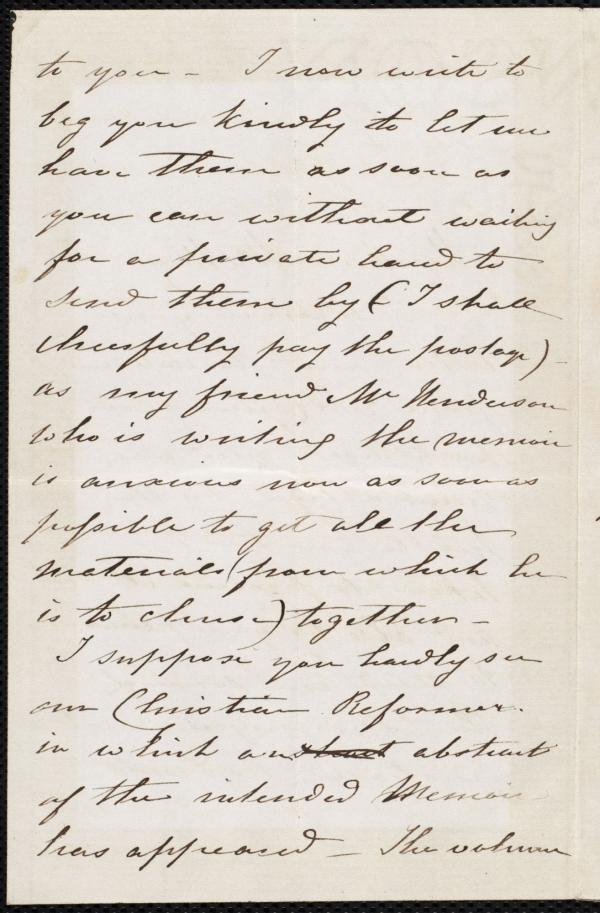 to you - I now write to
beg you kindly to let me
have them as soon as
you can without waiting
for a private hand to
send them by ( I shall
cheerfully pay the postage) -
as my friend Mr Henderson
who is writing the memoir
is anxious now as soon as
possible to get all the
materials (from which he
is to chuse) together -
I suppose you hardly see
our Christian Reformer.
in which an abstract
of the intended Memoir
has appeared - The volume